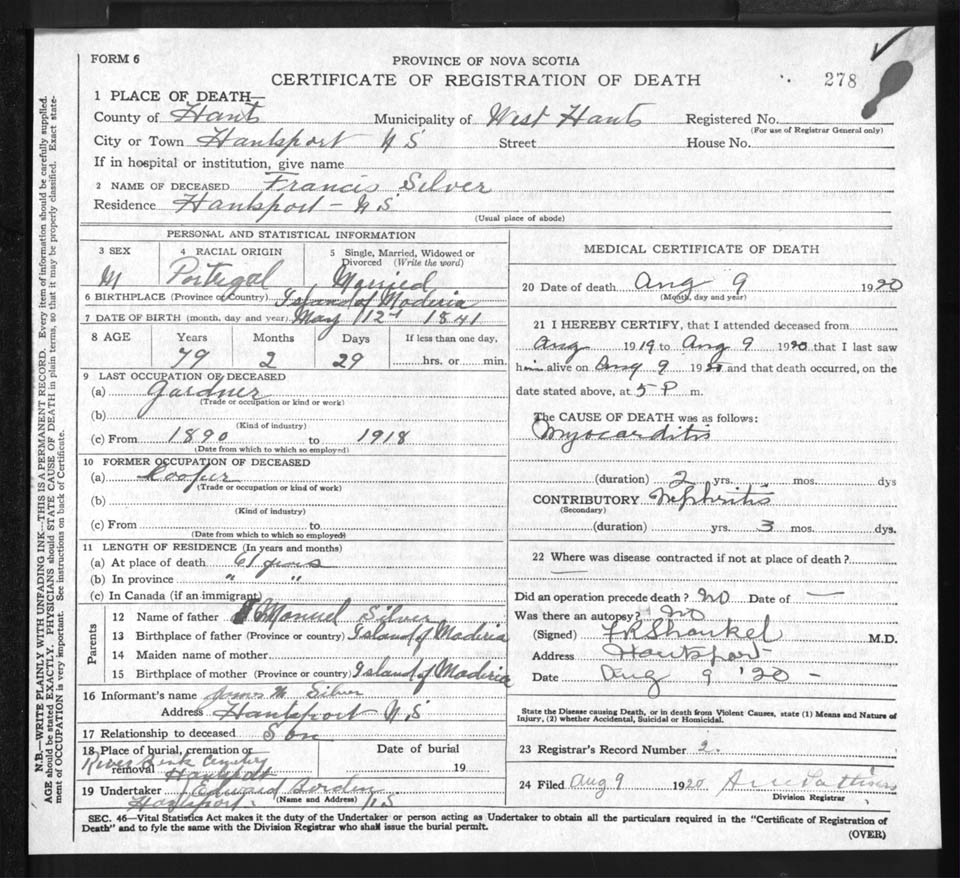 FORM 6
PROVINCE OF NOVA SCOTIA
CERTIFICATE OF REGISTRATION OF DEATH
278
1 PLACE OF DEATH—
County of Hants Municipality of West Hants Registered No.
(For use of Registrar General only)
City or Town Hantsport N S Street House No.
If in hospital or institution, give name
2 NAME OF DECEASED Francis Silver
Residence Hantsport - N S
(Usual place of abode)
PERSONAL AND STATISTICAL INFORMATION
3 SEX 4 RACIAL ORIGIN 5 Single, Married, Widowed or Divorced (Write the word)
M Portugal Married
6 BIRTHPLACE (Province or Country) Island of Maderia
7 DATE OF BIRTH (month, day and year) May 12 1841
8 AGE Years Months Days If less than one day,
79 2 29 hrs. or min.
9 LAST OCCUPATION OF DECEASED
(a) Gardner
(Trade or occupation or kind or work)
(b)
(Kind of industry)
(c) From 1890 to 1918
(Date from which to which so employed)
10 FORMER OCCUPATION OF DECEASED
(a) Cooper
(Trade or occupation or kind of work)
(b)
(Kind of industry)
(c) From to
(Date from which to which so employed)
11 LENGTH OF RESIDENCE (In years and months)
(a) At place of death 61 years
(b) In province " "
(c) In Canada (if an immigrant)
Parents
12 Name of father Manuel Silver
13 Birthplace of father (Province or country) Island of Maderia
14 Maiden name of mother
15 Birthplace of mother (Province or country) Island of Maderia
16 Informant's name James W Silver
Address Hantsport N,S
17 Relationship to deceased Son
18 Place of burial, cremation or removal Date of burial
River Bank Cemetery
Hantsport 19
19 Undertaker Edward Borden
(Name and Address)
Hantsport. N S
MEDICAL CERTIFICATE OF DEATH
20 Date of death Aug 9 1920
(Month, day and year)
21 I HEREBY CERTIFY, that I attended deceased from
Aug 1919 to Aug 9 1920 that I last saw
him alive on Aug 9 1920 and that death occurred, on the
date stated above, at 5 P m.
The CAUSE OF DEATH was as follows:
Myocarditis
(duration) 2 yrs. mos. dys
CONTRIBUTORY Nephritis
(Secondary)
(duration) yrs. 3 mos. dys.
22 Where was disease contracted if not at place of death?
—
Did an operation precede death? No Date of —
Was there an autopsy? No
(Signed) F R Shankel M.D.
Address Hantsport
Date Aug 9 '20 -
State the Disease causing Death, or in death from Violent Causes, state (1) Means and Nature of
Injury, (2) whether Accidental, Suicidal or Homicidal.
23 Registrar's Record Number 2.
24 Filed Aug 9 1920
Division Registrar
SEC. 46—Vital Statistics Act makes it the duty of the Undertaker or person acting as Undertaker to obtain all the particulars required in the "Certificate of Registration of
Death" and to fyle the same with the Division Registrar who shall issue the burial permit.
(OVER)
N.B.—WRITE PLAINLY WITH UNFADING INK—THIS IS A PERMANENT RECORD. Every item of information should be carefully supplied.
AGE should be stated EXACTLY. PHYSICIANS should STATE CAUSE OF DEATH in plain terms, so that it may be properly classified. Exact state-
ment of OCCUPATION is very important. See instructions on back of Certificate.